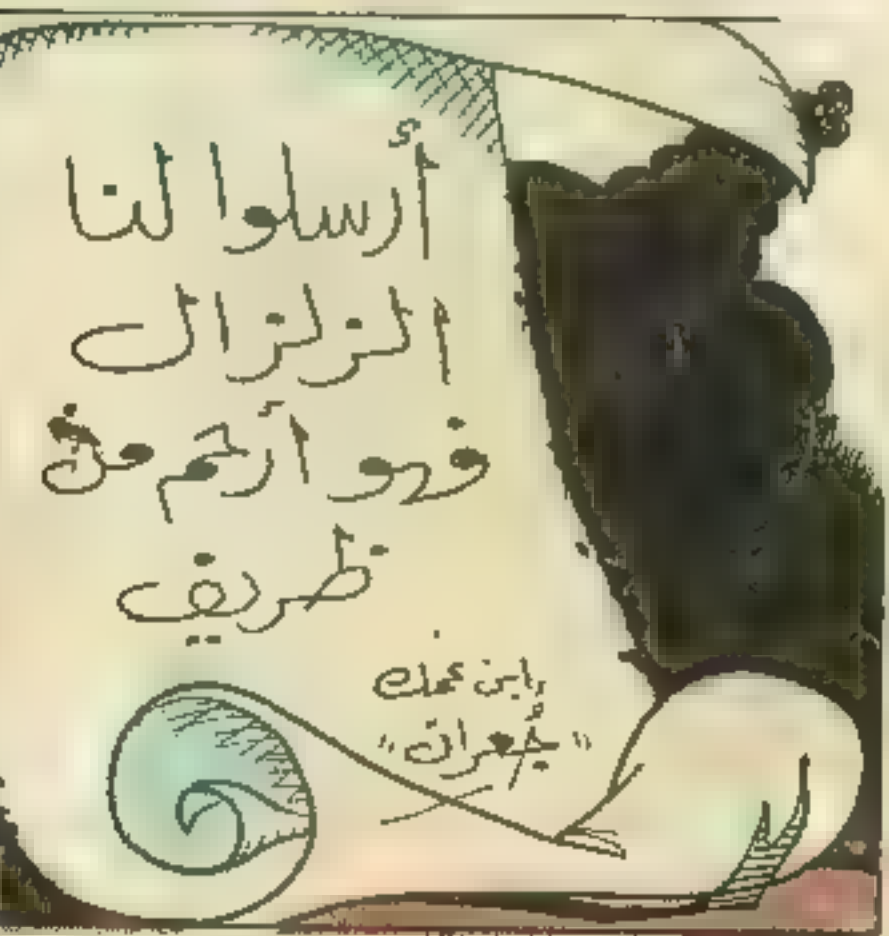 أرسلوا لنا
الزلزال
فهو أرحم من
ظريف
ابن عمك
"جُعران"